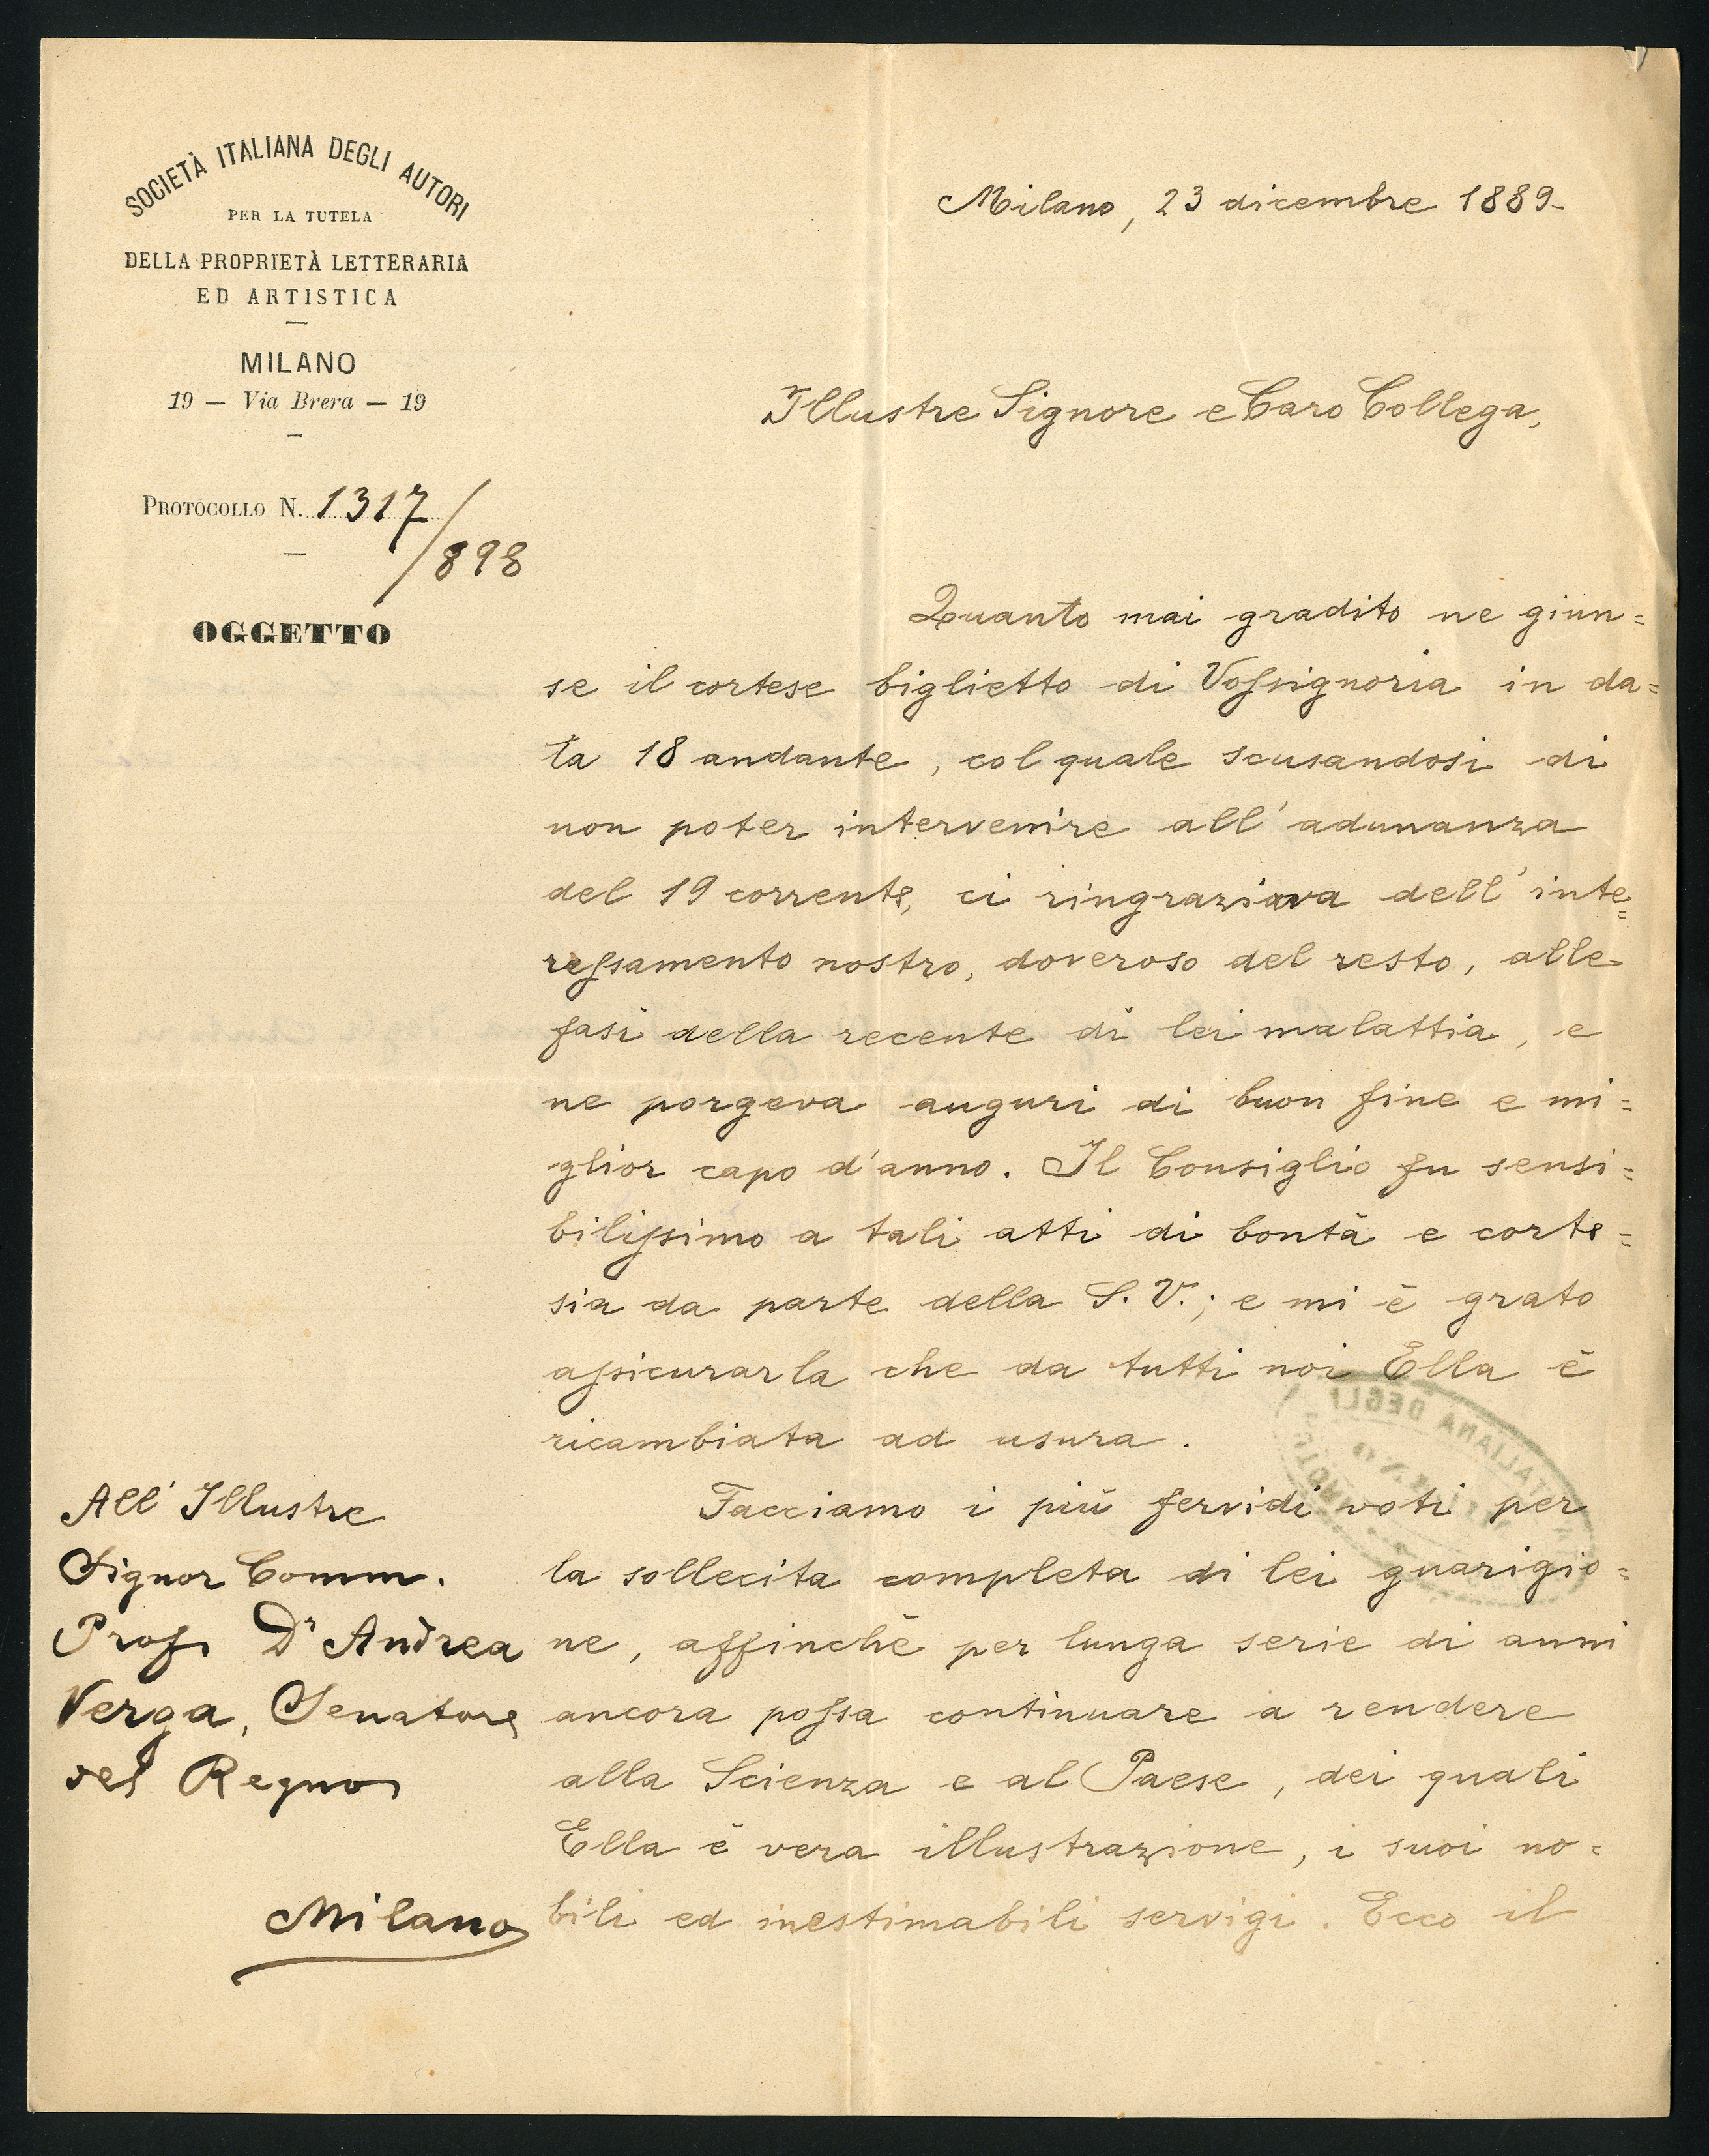 SOCIETÀ ITALIANA DEGLI AUTORI
PER LA TUTELA
DELLA PROPRIETÀ LETTERARIA
ED ARTISTICA
MILANO
19 — Via Brera — 19
PROTOCOLLO N. 1317/898
OGGETTO
Milano, 23 dicembre 1889-
Illustre Signore e Caro Collega,
Quanto mai gradito ne giun=
se il cortese biglietto di Vossignoria in da=
ta 18 andante, col quale scusandosi di
non poter intervenire all'adunanza
del 19 corrente, ci ringraziava dell'inte=
ressamento nostro, doveroso del resto, alle
fasi della recente di lei malattia, e
ne porgeva auguri di buon fine e mi=
glior capo d'anno. Il Consiglio fu sensi=
bilissimo a tali atti di bontà e corte=
sia da parte della S. V.; e mi è grato
assicurarla che da tutti noi Ella è
ricambiata ad usura.
Facciamo i più fervidi voti per
la sollecita completa di lei guarigio=
ne, affinchè per lunga serie di anni
ancora possa continuare a rendere
alla Scienza e al Paese, dei quali
Ella è vera illustrazione, i suoi no=
bili ed inestimabili servigi. Ecco il
All'Illustre
Signor Comm.
Prof. Dr Andrea
Verga, Senatore
del Regno
Milano